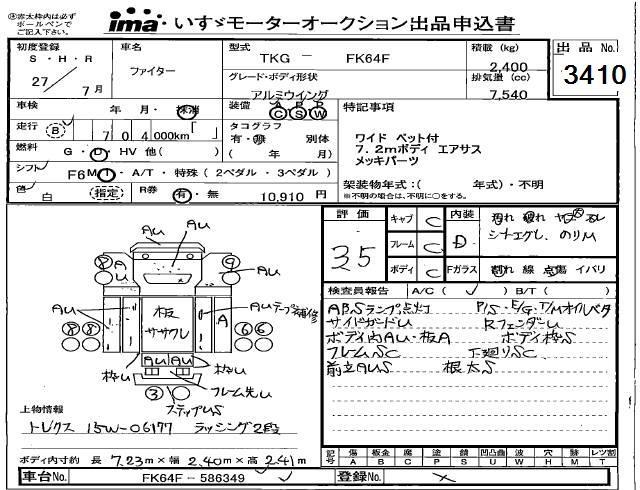 ※赤太枠内は必ず
ボールペンで
ご記入下さい。
ima・いすゞモーターオークション出品申込書
初度登録
S・H・R
27
7月
車名
ファイター
型式
TKG － FK64F
グレード・ボディ形状
アルミウイング
積載 (kg)
2,400
排気量 (cc)
7,540
出品 No.
3410
車検 年 月・抹消
装備 A C P S P W
走行 B 704,000km
タコグラフ
有・無 別体
( 年 月)
燃料 G・D・HV 他( )
シフト F6MT・A/T・特殊 (2ペダル・3ペダル)
色 白 (指定)
R券 有・無 10,910 円
特記事項
ワイド ベット付
7.2mボディ エアサス
メッキパーツ
架装物年式:( 年式)・不明
※不明の場合は、不明に○をする。
評価
35
キャブ C
フレーム C
ボディ C
内装 D
シートエグレ、のりU
Fガラス 割れ 線 点傷 イバリ
検査員報告 A/C( ✓ ) B/T( )
ABSランプ点灯 P/S・E/G・T/Mオイルベタ
サイドガードU RフェンダーU
ボディ内AU・板A ボディ枠S
フレームSC 下廻りSC
前立AUS 根太S
AU
AU
AU
A
U
8
9
AU
AU
板
ササクレ
A
AUテープ補修
8 8
6 6
枠U
AU AU
枠U
フレーム先U
3
ステップUS
上物情報
トレクス 15W-06177 ラッシング2段
ボディ内寸約 長 7.23m×幅 2.40m×高 2.41m
記号 傷 A 板金 B 腐 C 塗 P 錆 S 凹凸曲 U 波 W 穴 H 跡 M レツ割 T
車台No. FK64F－586349
登録No.